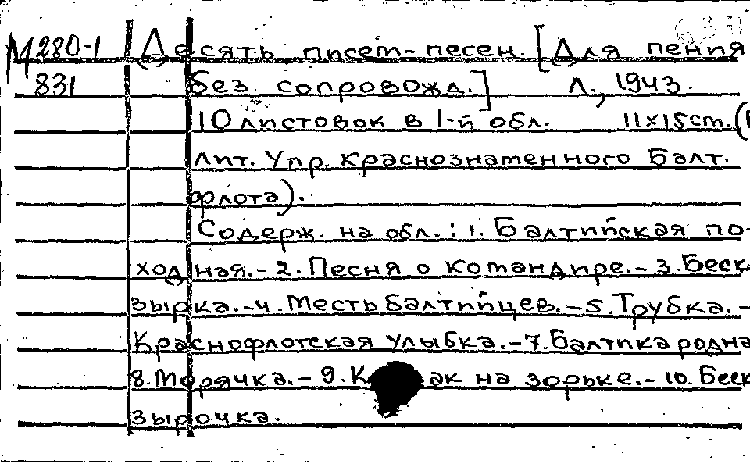 М280-1 Десять писем-песен. [Для пения
831 без сопровожд.] Л., 1943.
10 листовок в 1-й обл. 11х15cm. (
лит. Упр. Краснознаменного Балт.
флота).
Содерж. на обл.: 1. Балтийская по-
ходная.-2. Песня о командире.-3. Беск
зырка.-4. Месть Балтийцев.-5. Трубка.-
Краснофлотская улыбка.-7. Балтика родна
8. Морячка.-9. К ак на зорьке.-10. Беск
зырочка.